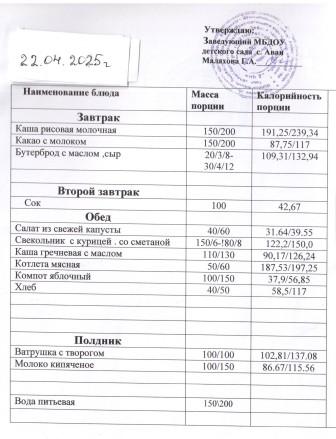 22.04.2025г
Утверждаю:
Заведующий МБДОУ
детского сада с. Аван
Малахова Е.А.
Наименование блюда Масса порции Калорийность порции
Завтрак
Каша рисовая молочная 150/200 191,25/239,34
Какао с молоком 150/200 87,75/117
Бутерброд с маслом ,сыр 20/3/8-30/4/12 109,31/132,94
Второй завтрак
Сок 100 42,67
Обед
Салат из свежей капусты 40/60 31.64/39.55
Свекольник с курицей . со сметаной 150/6-!80/8 122,2/150,0
Каша гречневая с маслом 110/130 90,17/126,24
Котлета мясная 50/60 187,53/197,25
Компот яблочный 100/150 37,9/56,85
Хлеб 40/50 58,5/117
Полдник
Ватрушка с творогом 100/100 102,81/137.08
Молоко кипяченое 100/150 86.67/115.56
Вода питьевая 150\200